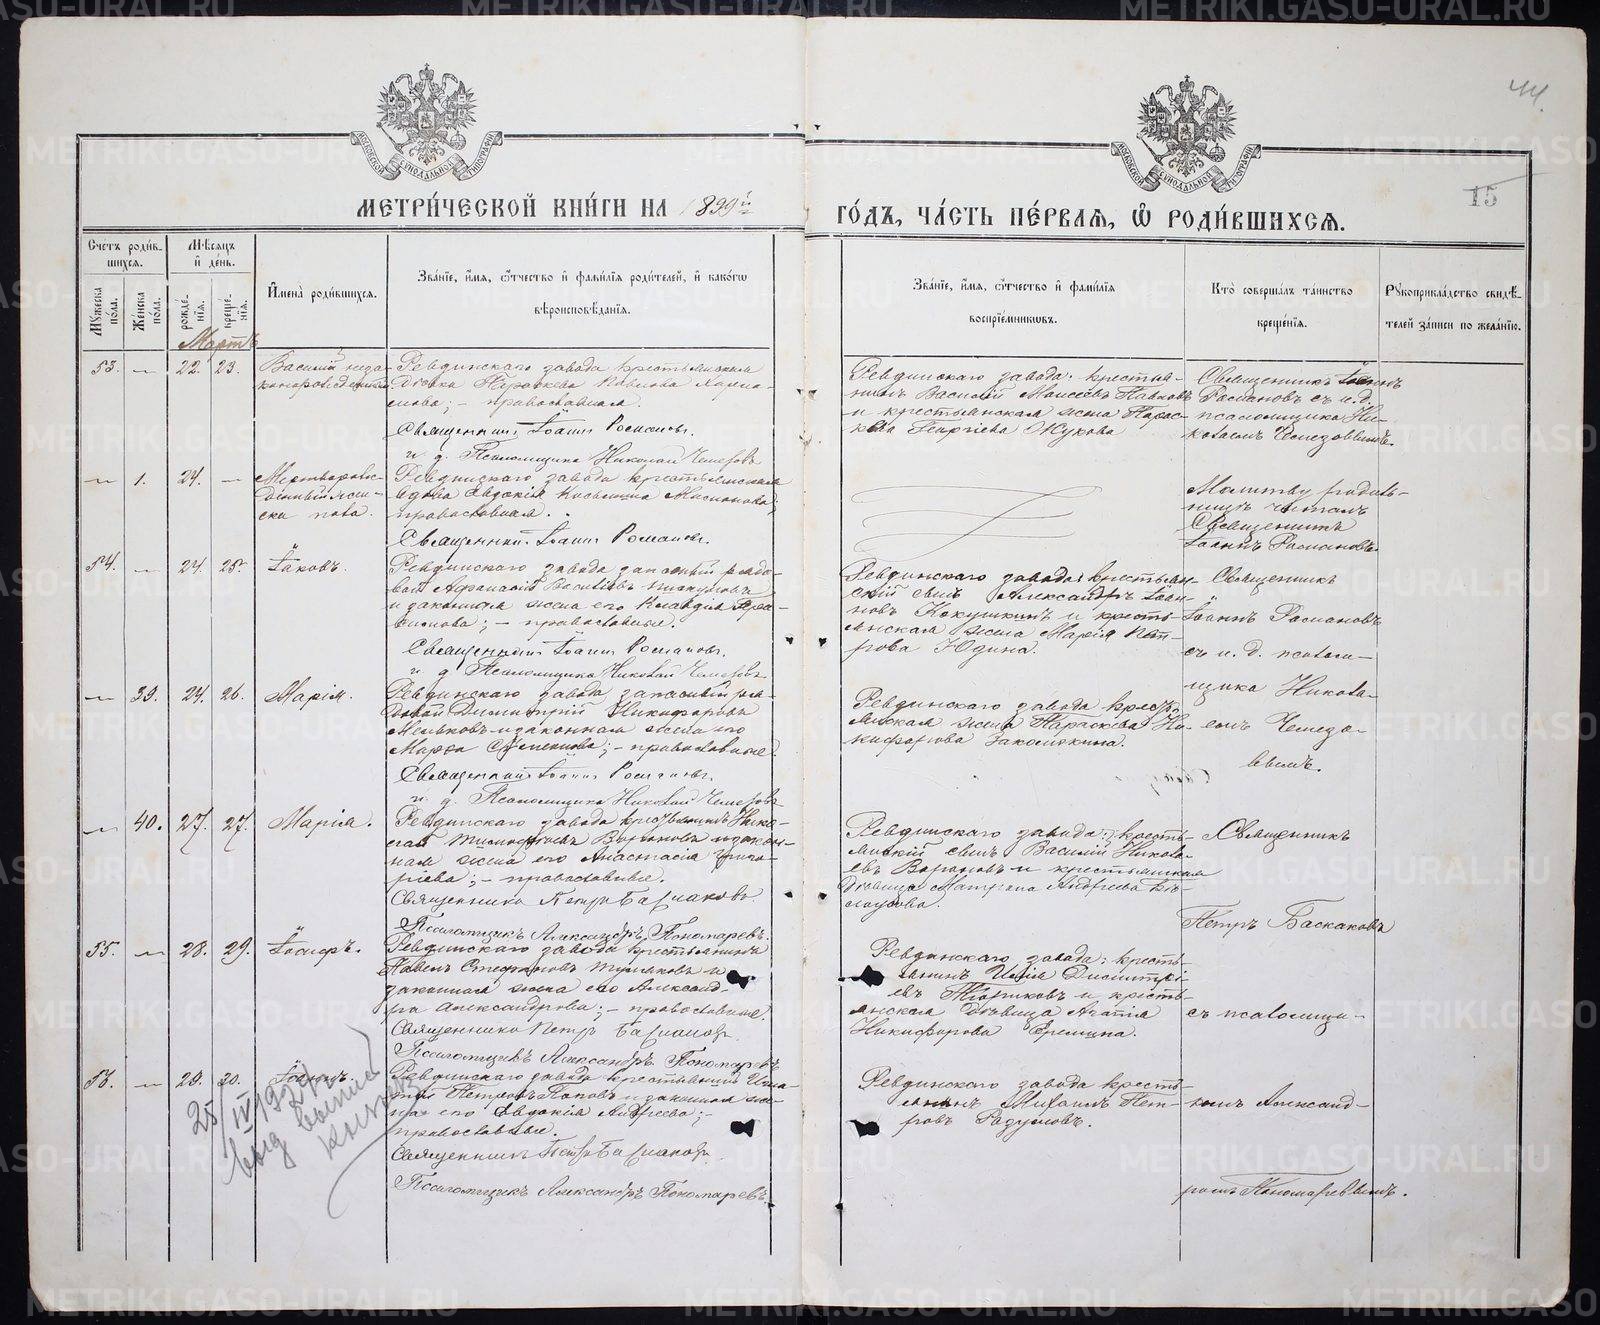 44.
15
МЕТРИ́ЧЕСКОЙ КНИ́ГИ НА 1899й
ГО́ДЪ, ЧА́СТЬ ПЕ́РВАЯ, Ѡ РОДИ́ВШИХСЯ.
Счетъ роди́в-
шихся.
Мѣсяцъ
и де́нь.
Мужеска
по́ла.
Же́нска
по́ла.
рожде́-
нія.
креще́-
нія.
Имена̀ роди́вшихся.
Зва́нїе, и́мя, ѻ́тчество и фами́лїя роди́телей, и како́гѡ
вѣроисповѣ́данїя.
Зва́нїе, и́мя, ѻ́тчество и фами́лїя
воспрїе́мникѡвъ.
Кто̀ соверша́лъ та́инство
креще́нїя.
Рукоприкла́дство свидѣ́-
телей за́писи по жела́нїю.
Мартъ
53. — 22. 23. Василій неза-
конорожденный
Ревдинскаго завода крестьянская
дѣвка Параскева Павлова
православная.
Священникъ Іоаннъ Романовъ.
и. д. Псаломщика Николай Чемезовъ
Ревдинскаго завода: крестья-
нинъ Василій Моисеевъ
и крестьянская жена Парас-
кева Георгіева Жукова
Священникъ Іоаннъ
Романовъ съ и. д.
псаломщика Ни-
колаемъ Чемезовымъ.
— 1. 24. — Мертворож-
денный жен-
ска пола.
Ревдинскаго завода крестьянская
вдова Евдокія Косьмина
православная.
Священникъ Іоаннъ Романовъ.
Молитву родиль-
ницѣ читалъ
Священникъ
Іоаннъ Романовъ.
54. — 24. 25. Іаковъ.
Ревдинскаго завода запасный рядо-
вой Афанасій Васильевъ
и законная жена его Клавдія
православные.
Священникъ Іоаннъ Романовъ.
и. д. Псаломщика Николай Чемезовъ
Ревдинскаго завода: крестьян-
скій сынъ Александръ Іоан-
новъ Кокушкинъ и кресть-
янская жена Марія Пет-
рова Юдина.
Священникъ
Іоаннъ Романовъ
съ и. д. псалом-
щика Никола-
емъ Чемезо-
вымъ.
— 39. 24. 26. Марія.
Ревдинскаго завода запасный ря-
довой Димитрій Никифоровъ
и законная жена его
Марѳа православные.
Священникъ Іоаннъ Романовъ.
и. д. Псаломщика Николай Чемезовъ
Ревдинскаго завода кресть-
янская жена Параскева Ни-
кифорова
— 40. 27. 27. Марія.
Ревдинскаго завода крестьянинъ Нико-
лай Тимофеевъ Вороновъ и закон-
ная жена его Анастасія Григо-
ріева; — православные.
Священникъ Петръ Баскаковъ
Псаломщикъ Александръ Пономаревъ.
Ревдинскаго завода: кресть-
янскій сынъ Василій Никола-
евъ Вороновъ и крестьянская
дѣвица Матрена Андреева Бѣ-
лоусова.
Священникъ
Петръ Баскаковъ
съ псаломщи-
комъ Александ-
ромъ Пономаревымъ.
55. — 28. 29. Іосифъ.
Ревдинскаго завода крестьянинъ
Павелъ Стефановъ и
законная жена его Александ-
ра Александрова; — православные.
Священникъ Петръ Баскаковъ
Псаломщикъ Александръ Пономаревъ
Ревдинскаго завода: кресть-
янинъ Илія Димитрі-
евъ и кресть-
янская дѣвица Агапія
Никифорова Еремина.
56. — 29. 30. Іоаннъ.
Ревдинскаго завода крестьянинъ Игна-
тій Петровъ Поповъ и законная же-
на его Евдокія Андреева; —
православные.
Священникъ Петръ Баскаковъ.
Псаломщикъ Александръ Пономаревъ.
Ревдинскаго завода кресть-
янинъ Михаилъ Пет-
ровъ Разумовъ.
25/IV 1924
выд выпись